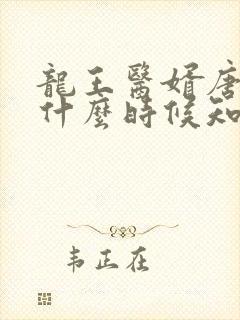 龍王醫婿唐
什麼時候知
韦正在